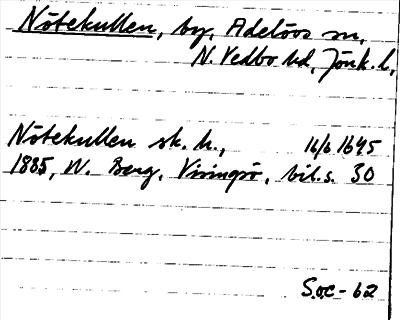 Nötekullen, by, Adelövs sn,
N. Vedbo hd, Jönk. l.
Nötekullen sk. h., 16/6 1645
1885, W. Berg, Visingsö, bil.s. 30
S.oc - 62